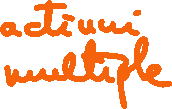 actiuni
multiple